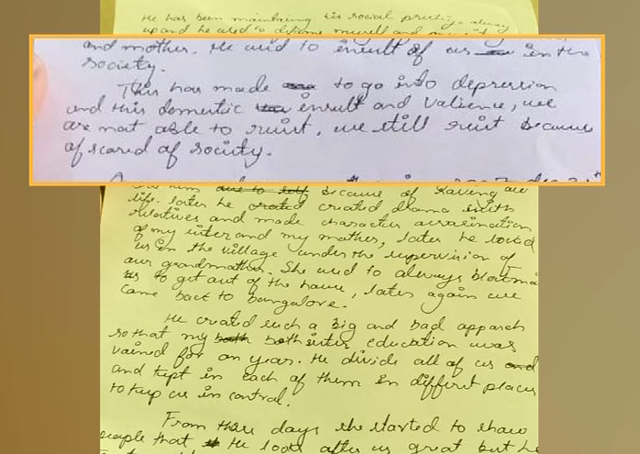 He has been maintaining his social
up and he used to defame myself and
and mother. He used to insult of us in the
society.
This has made to go into depression
and this domestic insult and Valience, we
are not able to resist, we still resist because
of scared of society.
him because of
life. later he created drama with
relatives and made character
of my sister and my mother, later he
us in the village under the supervision of
our grandmother. She used to always
us to get out of the house, later again we
came back to bangalore.
He created such a big and bad
so that my both sister education was
vained for an year. He divide all of us
and kept in each of them in different places
to keep us in control.
From there days she started to show
people that He look after us great but he